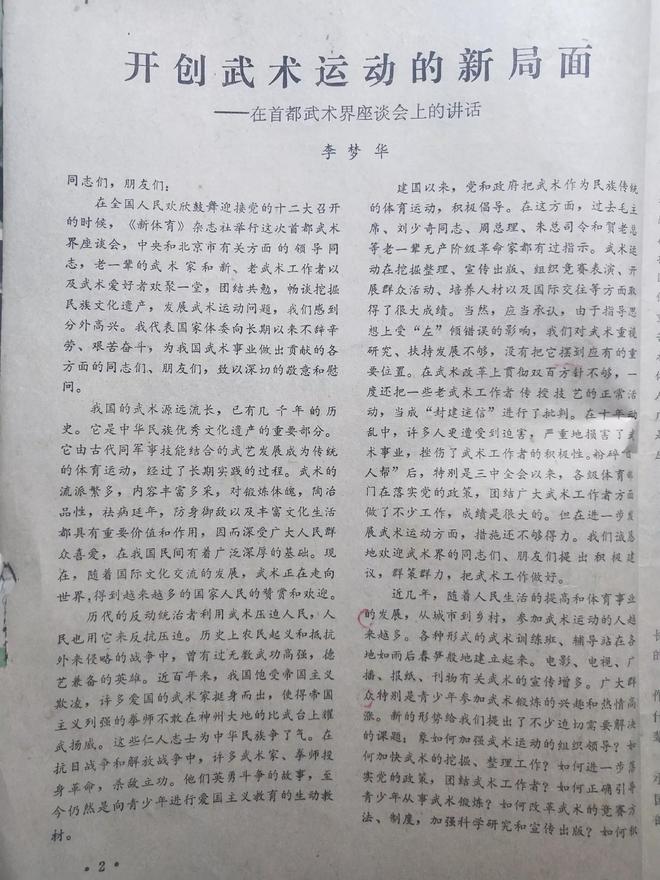 开创武术运动的新局面
——在首都武术界座谈会上的讲话
李梦华
同志们，朋友们：
在全国人民欢欣鼓舞迎接党的十二大召开
的时候，《新体育》杂志社举行这次首都武术
界座谈会，中央和北京市有关方面的领导同
志，老一辈的武术家和新、老武术工作者以
及武术爱好者欢聚一堂，团结共勉，畅谈挖掘
民族文化遗产，发展武术运动问题，我们感到
分外高兴。我代表国家体委向长期以来不辞辛
劳、艰苦奋斗，为我国武术事业做出贡献的各
方面的同志们、朋友们，致以深切的敬意和慰
问。
我国的武术源远流长，已有几千年的历
史。它是中华民族优秀文化遗产的重要部分。
它由古代同军事技能结合的武艺发展成为传统
的体育运动，经过了长期实践的过程。武术的
流派繁多，内容丰富多采，对锻炼体魄，陶冶
品性，祛病延年，防身御敌以及丰富文化生活
都具有重要价值和作用，因而深受广大人民群
众喜爱，在我国民间有着广泛深厚的基础。现
在，随着国际文化交流的发展，武术正在走向
世界，得到越来越多的国家人民的赞赏和欢迎。
历代的反动统治者利用武术压迫人民，人
民也用它来反抗压迫。历史上农民起义和抵抗
外来侵略的战争中，曾有过无数武功高强，德
艺兼备的英雄。近百年来，我国饱受帝国主义
欺凌，许多爱国的武术家挺身而出，使得帝国
主义列强的拳师不敢在神州大地的比武台上耀
武扬威。这些仁人志士为中华民族争了气。在
抗日战争和解放战争中，许多武术家、拳师投
身革命，杀敌立功。他们英勇斗争的故事，至
今仍然是向青少年进行爱国主义教育的生动教
材。
·2·
建国以来，党和政府把武术作为民族传统
的体育运动，积极倡导。在这方面，过去毛主
席、刘少奇同志、周总理、朱总司令和贺老总
等老一辈无产阶级革命家都有过指示。武术运
动在挖掘整理、宣传出版、组织竞赛表演、开
展群众活动、培养人材以及国际交往等方面取
得了很大成绩。当然，应当承认，由于指导思
想上受“左”倾错误的影响，我们对武术重视
研究、扶持发展不够，没有把它摆到应有的重
要位置。在武术改革上贯彻双百方针不够，一
度还把一些老武术工作者传授技艺的正常活
动，当成“封建迷信”进行了批判。在十年动
乱中，许多人更遭受到迫害，严重地损害了武
术事业，挫伤了武术工作者的积极性。粉碎“四
人帮”后，特别是三中全会以来，各级体育部
门在落实党的政策，团结广大武术工作者方面
做了不少工作，成绩是很大的。但在进一步发
展武术运动方面，措施还不够得力。我们诚恳
地欢迎武术界的同志们、朋友们提出积极建
议，群策群力，把武术工作做好。
近几年，随着人民生活的提高和体育事业
的发展，从城市到乡村，参加武术运动的人越
来越多。各种形式的武术训练班、辅导站在各
地如雨后春笋般地建立起来。电影、电视、广
播、报纸、刊物有关武术的宣传增多。广大群
众特别是青少年参加武术锻炼的兴趣和热情高
涨。新的形势给我们提出了不少迫切需要解决
的课题：象如何加强武术运动的组织领导？如
何加快武术的挖掘、整理工作？如何进一步落
实党的政策，团结武术工作者？如何正确引导
青少年从事武术锻炼？如何改革武术的竞赛方
法、制度，加强科学研究和宣传出版？如何积